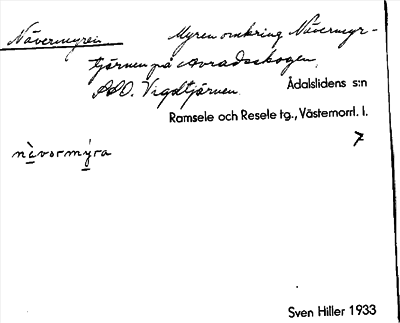 Nävermyren Myren omkring Nävermyr-
tjärnen på Avradsskogen,
ASO. Vigdtjärnen.
Ådalslidens s:n
Ramsele och Resele tg., Västernorrl. l.
7
nävɔrmýra
Sven Hiller 1933